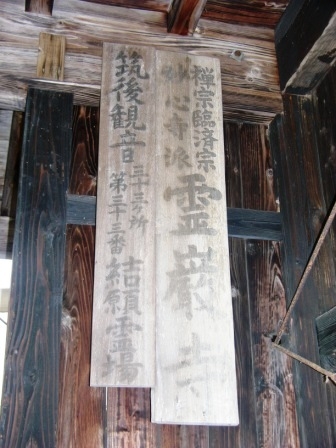 禅宗臨済宗
妙心寺派
霊巌寺
筑後観音三十三所
第三十三番
結願霊場